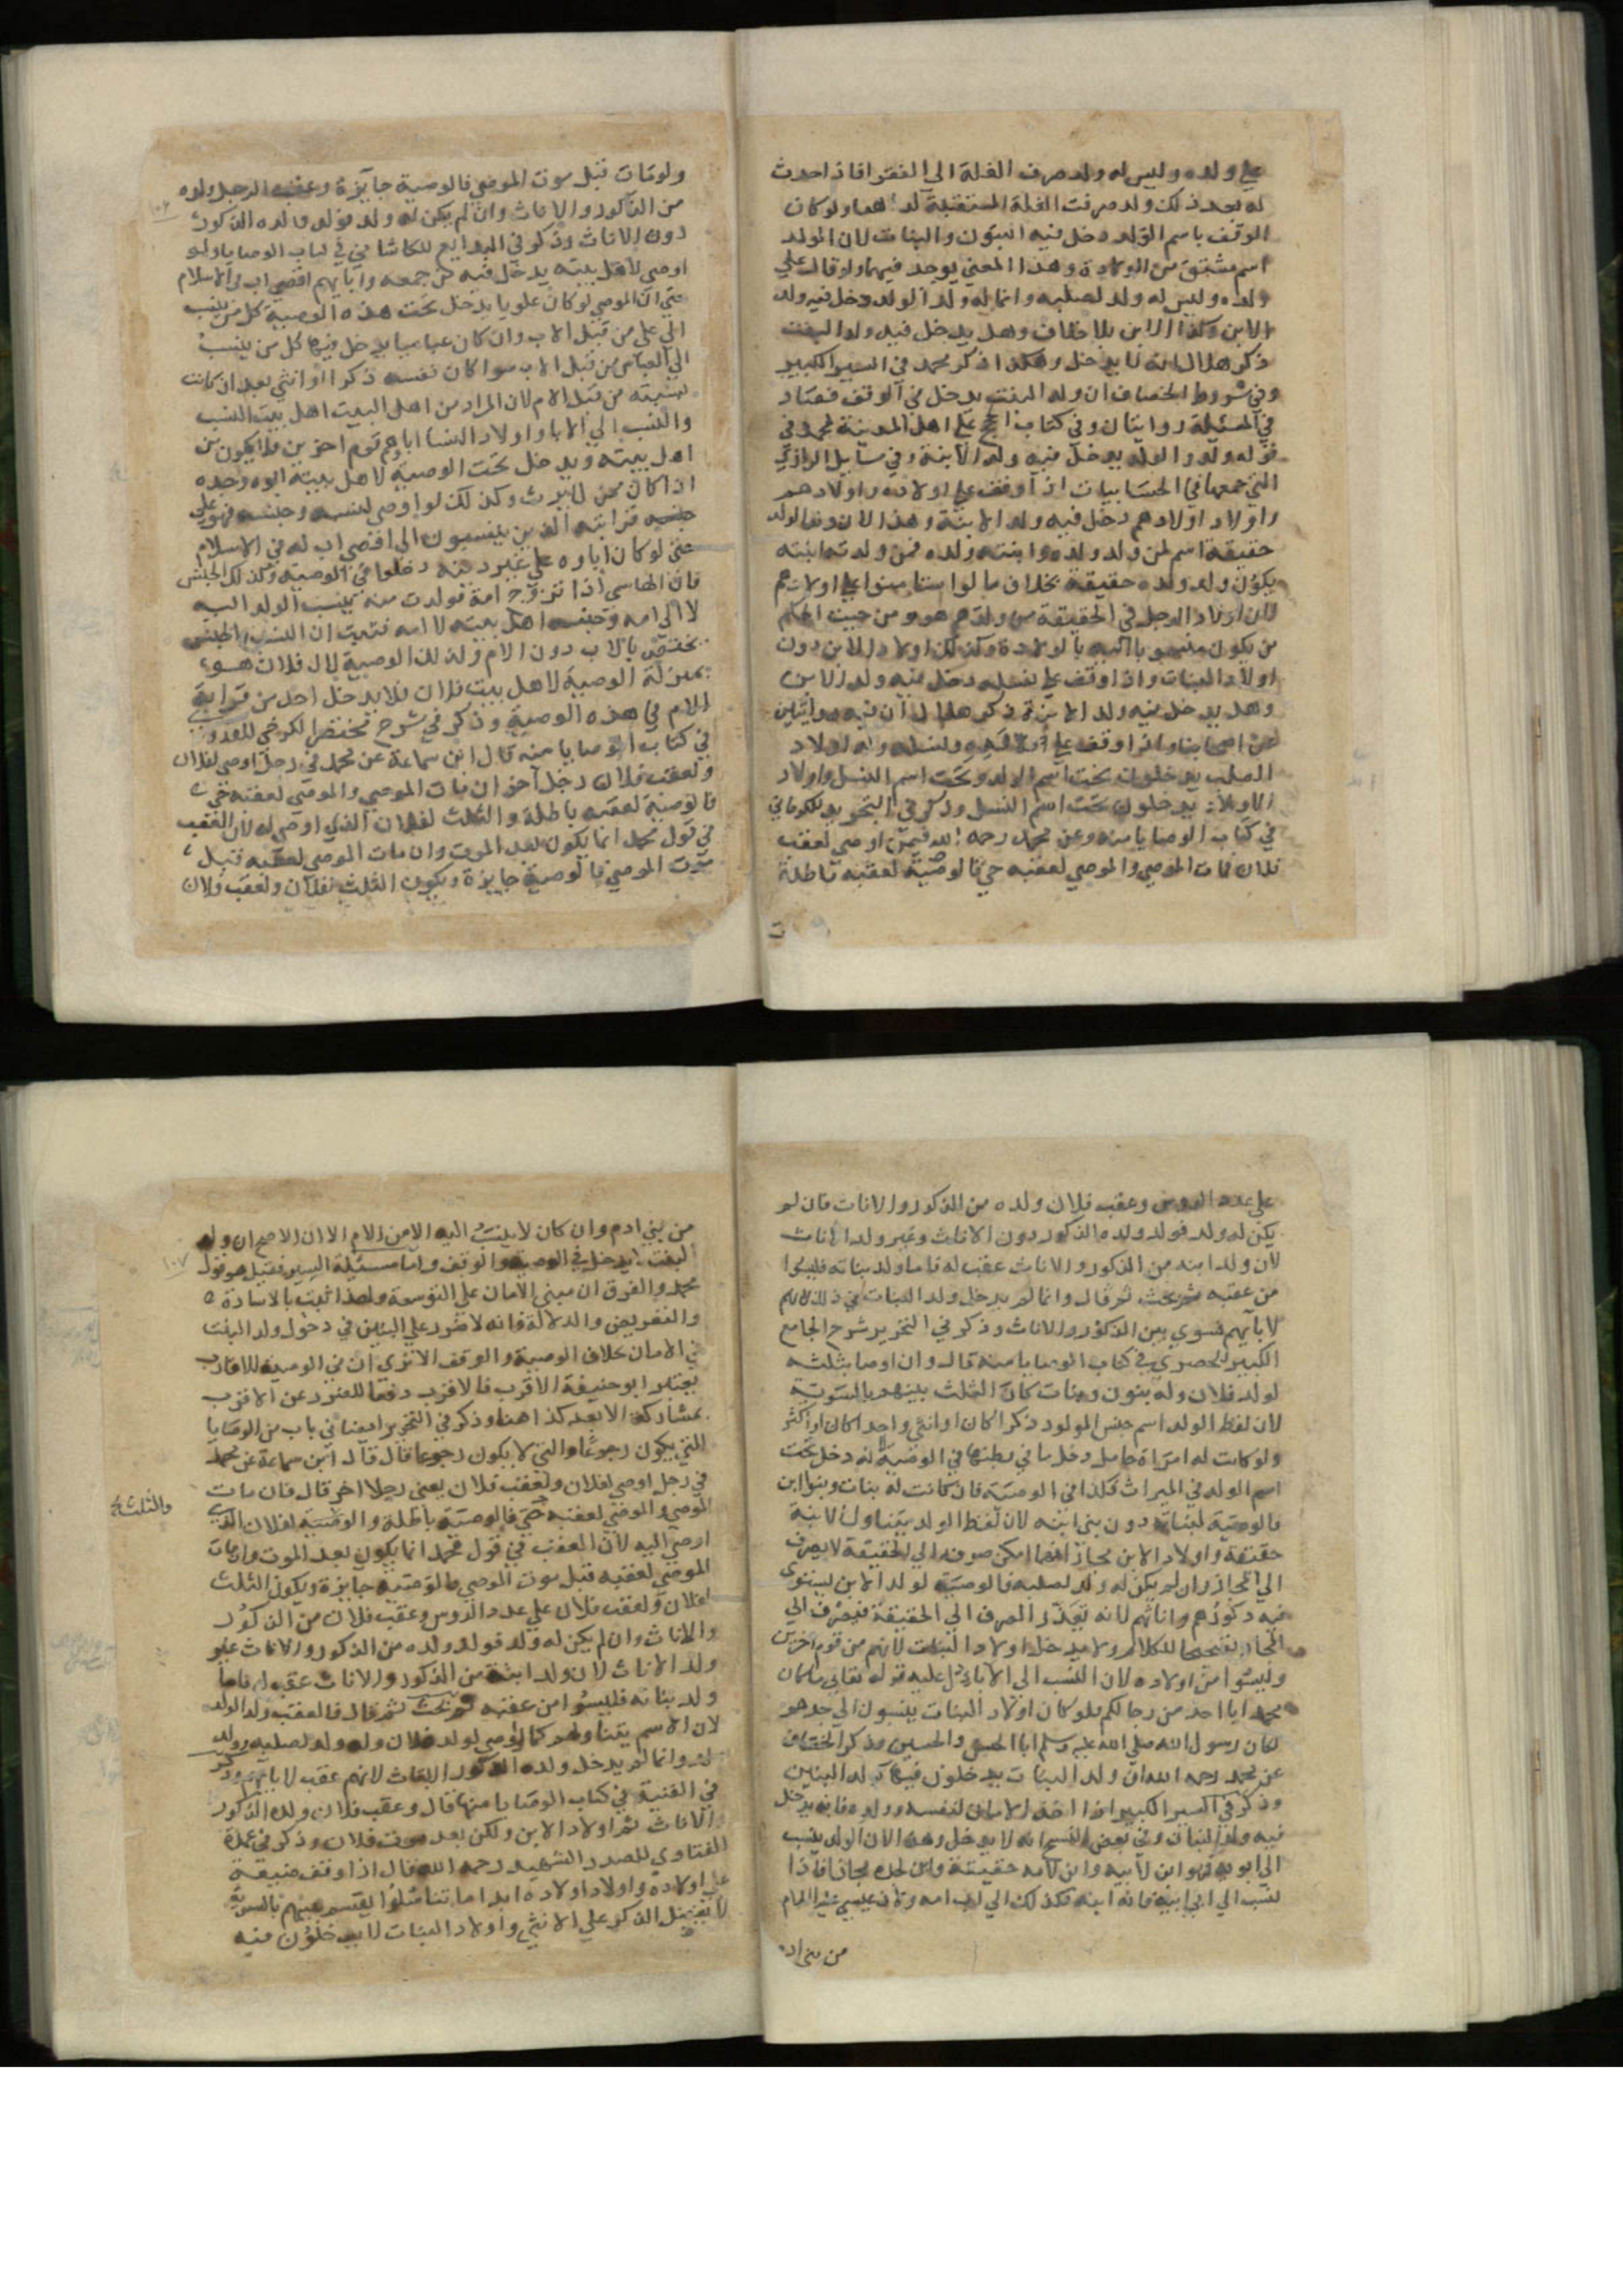 علي ولده وليس له ولد صرف الغلة الي الفقرا فاذا حدث
له بعد ذلك ولد صرفت الغلة المستقبلة له ولو كان
الوقف باسم الولد دخل فيه البنون والبنات لان الولد
اسم مشتق من الولادة وهذا المعني يوجد فيهما ولو قال علي
ولده وليس له ولد لصلبه وانما له ولد الولد دخل فيه ولد
الابن وكذا الابن بلا خلاف وهل يدخل فيه ولد البنت
ذكر هلال انه لا يدخل وهكذا ذكر محمد في السير الكبير
وفي شروط الخصاف ان ولد البنت يدخل في الوقف فصار
في المسئلة روايتان وفي كتاب الحج علي اهل المدينة لمحمد في
قوله ولد الولد يدخل فيه ولد الابنة وفي مسايل الرازي
التي جمعها في الحسابيات اذا وقف علي اولاده واولادهم
واولاد اولادهم دخل فيه ولد الابنة وهذا لان ولد الولد
حقيقة اسم لمن ولد ولده وابنته ولده فمن ولدته ابنته
يكون ولد ولده حقيقة بخلاف ما لو استامنوا علي اولادهم
لان اولاد الرجل في الحقيقة من ولدهم هو ومن حيث الحكم
من يكون منسوبا اليه بالولادة وكذلك اولاد الابن دون
اولاد البنات واذا وقف علي نسله دخل فيه ولد الابن
وهل يدخل فيه ولد الابنة ذكر هلال ان فيه روايتين
عن اصحابنا واذا وقف علي ولده ونسله وله اولاد
الصلب يدخلون تحت اسم الولد وتحت اسم النسل واولاد
الاولاد يدخلون تحت اسم النسل وذكر في التجريد للكرماني
في كتاب الوصايا منه وعن محمد رحمه الله فيمن اوصي لعقب
فلان فمات الموصي والموصي لعقبه حي فالوصية لعقبه باطلة
ولو مات قبل موت الموصي فالوصية جايزة وعقب الرجل ولده
من الذكور والاناث وان لم يكن له ولد فولد ولده الذكور
دون الاناث وذكر في البدايع للكاشاني في كتاب الوصايا ولو
اوصي لاهل بيته يدخل فيه من جمعه وآباءهم اقصي اب في الاسلام
حتي ان الموصي لو كان علويا يدخل تحت هذه الوصية كل من ينسب
الي علي من قبل الاب وان كان عباسيا يدخل فيها كل من ينسب
الي العباس من قبل الاب سوا كان نفسه ذكرا او انثي بعد ان كانت
نسبته من قبل الام لان المراد من اهل البيت اهل بيت النسب
والنسب الي الابا واولاد النسا اباوهم قوم اخرين فلا يكون من
اهل بيته ويدخل تحت الوصية لاهل بيته ابوه وجده
اذا كان ممن لا يرث وكذلك لو اوصي لنسبه وجنسه فهو علي
قرابته الذين ينسبون الي اقصي اب له في الاسلام
حتي لو كان اباوه علي غير دينه دخلوا في الوصية وكذلك الجنس
فان الهاشمي اذا تزوج امة فولدت منه ينسب الولد اليه
لا الي امه وجنسه اهل بيته لا امه فثبت ان النسب والجنس
يختص بالاب دون الام وكذلك الوصية لال فلان هو
بمنزلة الوصية لاهل بيت فلان فلا يدخل احد من قرابة
الام في هذه الوصية وذكر في شرح مختصر الكرخي للقدوري
في كتاب الوصايا منه قال ابن سماعة عن محمد في رجل اوصي لفلان
ولعقب فلان رجل آخر ان مات الموصي والموصي لعقبه حي
فالوصية لعقبه باطلة والثلث لفلان الذي اوصي له لان العقب
في قول محمد انما يكون بعد الموت وان مات الموصي لعقبه قبل
موت الموصي فالوصية جايزة ويكون الثلث لفلان ولعقب فلان
علي عدد الروس وعقب فلان ولده من الذكور والاناث فان لم
يكن له ولد فولد ولده الذكور دون الاناث وغير ولد الاناث
لان ولد ابنه من الذكور والاناث عقب له فاما ولد بناته فليسوا
من عقبه ثم قال وانما لم يدخل ولد البنات في ذلك لانهم
لابائهم فسوي بين الذكور والاناث وذكر في التحرير شرح الجامع
الكبير للحصيري في كتاب الوصايا منه قال وان اوصا بثلثه
لولد فلان وله بنون وبنات كان الثلث بينهم بالسوية
لان لفظ الولد اسم جنس المولود ذكرا كان او انثي واحدا كان او اكثر
ولو كانت له امراة حامل دخل ما في بطنها في الوصية لانه دخل تحت
اسم الولد في الميراث فكذا في الوصية فان كانت له بنات وبنو ابن
فالوصية لبناته دون بني ابنه لان لفظ الولد يتناول الابنة
حقيقة واولاد الابن مجازا فما امكن صرفه الي الحقيقة لا يصرف
الي المجاز وان لم يكن له ولد لصلبه فالوصية لولد الابن يستوي
فيه ذكورهم واناثهم لانه تعذر الصرف الي الحقيقة فيصرف الي
المجاز تصحيحا للكلام ولا يدخل اولاد البنات لانهم من قوم اخرين
وليسوا من اولاده لان النسب الي الابا دل عليه قوله تعالي ما كان
محمد ابا احد من رجالكم فلو كان اولاد البنات ينسبون الي جدهم
لكان رسول الله صلي الله عليه وسلم ابا الحسن والحسين وذكر الخصاف
عن محمد رحمه الله ان ولد البنات يدخلون فيها كولد البنين
وذكر في السير الكبير اذا اخذ الامان لنفسه وولده فانه يدخل
فيه ولد البنات وفي بعض النسخ انه لا يدخل وهذا لان الولد ينسب
الي ابويه فهو ابن لابيه وابن لامه حقيقة وابن لجده مجازا فاذا
نسب الي ابي ابيه فانه ابنه فكذلك الي اب امه ولان عيسي عليه السلام
من بني اد
من بني ادم وان كان لا ينسب اليه الا من الام الا ان الاصح ان ولد
البنت لا يدخل في الوصية والوقف واما مسئلة السير فقيل هو قول
محمد والفرق ان مبني الامان علي التوسعة ولهذا ثبت بالاشارة
والتعريض والدلالة فانه لا ضرر علي البنين في دخول ولد البنت
في الامان بخلاف الوصية والوقف الا تري ان في الوصية للاقارب
يعتبر ابو حنيفة الاقرب فالاقرب دفعا للضرر عن الاقرب
بمشاركة الابعد كذا هنا وذكر في التحرير ايضا في باب من الوصايا
التي يكون رجوعا والتي لا يكون رجوعا قال قال ابن سماعة عن محمد
في رجل اوصي لفلان ولعقب فلان يعني رجلا اخر قال فان مات
الموصي والموصي لعقبه حي فالوصية باطلة والوصية لفلان الذي
والثلث
اوصي اليه لان العقب في قول محمد انما يكون بعد الموت وان مات
الموصي لعقبه قبل موت الموصي فالوصية جايزة ويكون الثلث
لفلان ولعقب فلان علي عدد الروس وعقب فلان من الذكور
والاناث وان لم يكن له ولد فولد ولده من الذكور والاناث غير
ولد الاناث لان ولد ابنه من الذكور والاناث عقب له فاما
ولد بناته فليسوا من عقبه ثم قال فالعقب ولد الولد
لان الاسم يتناولهم كما لو اوصي لولد فلان وله ولد لصلبه وولد
ولد وانما لم يدخل ولده الذكور البنات لانهم عقب لابائهم وذكر
في القنية في كتاب الوصايا منها قال وعقب فلان ولده الذكور
والاناث ثم اولاد الابن ولكن بعد موت فلان وذكر في عمدة
الفتاوي للصدر الشهيد رحمه الله قال اذا وقف ضيعة
علي اولاده واولاد اولاده ابدا ما تناسلوا يقسم بينهم بالسوية
لا يفضل الذكر علي الانثي واولاد البنات لا يدخلون فيه